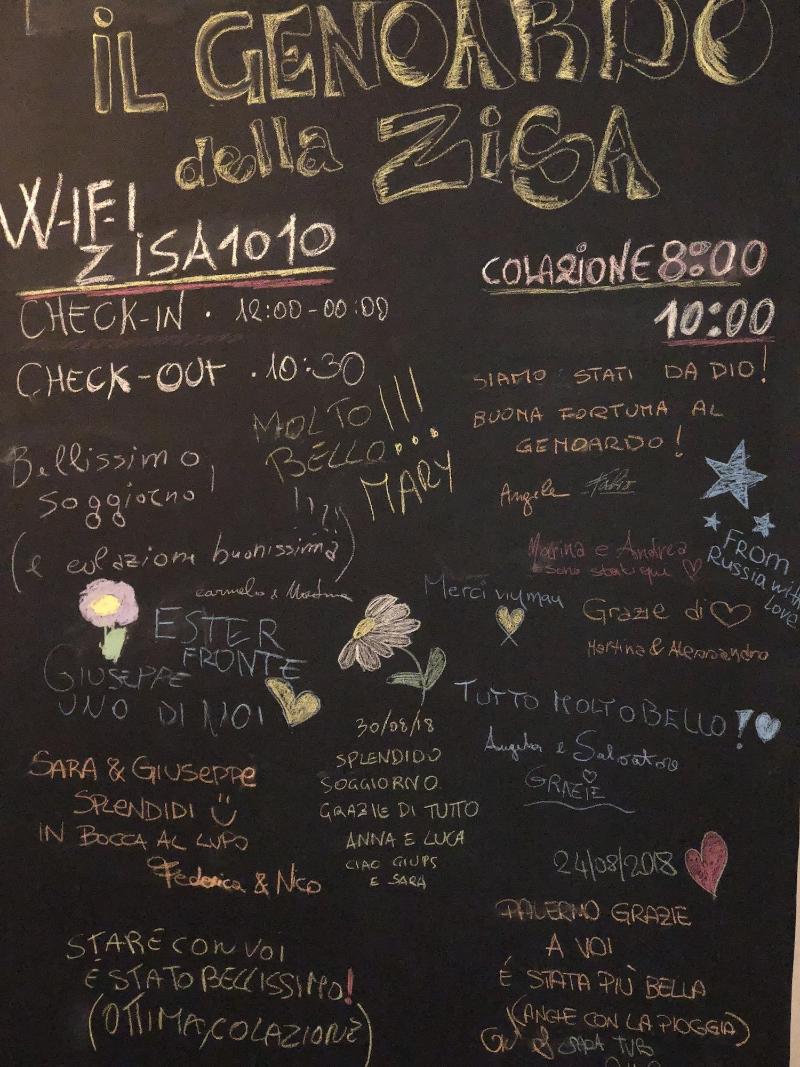 IL GENOARDO
della ZISA
WIFI
ZISA1010
CHECK-IN · 12:00-00:00
CHECK-OUT · 10:30
COLAZIONE 8:00
10:00
SIAMO STATI DA DIO!
BUONA FORTUNA AL
GENOARDO!
Angela Fabio
MOLTO!!!
BELLO...
MARY
Bellissimo
soggiorno!
(e colazione buonissima)
Carmelo & Martina
FROM
Russia with
Love
Marina e Andrea
sono stati qui
Merci
Grazie di
Martina & Alessandro
ESTER
FRONTE
GIUSEPPE
UNO DI NOI
TUTTO MOLTO BELLO!
Angela e Salvatore
GRAZIE
SARA & GIUSEPPE
SPLENDIDI
IN BOCCA AL LUPO
Federica & Nico
30/08/18
SPLENDIDO
SOGGIORNO
GRAZIE DI TUTTO
ANNA E LUCA
CIAO GIUPS
E SARA
24/08/2018
PALERMO GRAZIE
A VOI
É STATA PIÙ BELLA
(ANCHE CON LA PIOGGIA)
STARE CON VOI
E STATO BELLISSIMO!
(OTTIMA COLAZIONE)